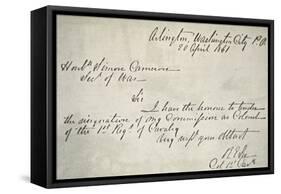 Arlington, Washington City P.O.
20 April 1861
Honble Simon Cameron
Secy of War
Sir
I have the honour to tender
the resignation of my Commission as Colonel
of the 1st Regt of Cavalry
Very respy your Obt Servt
R E Lee
Col 1st Cavy